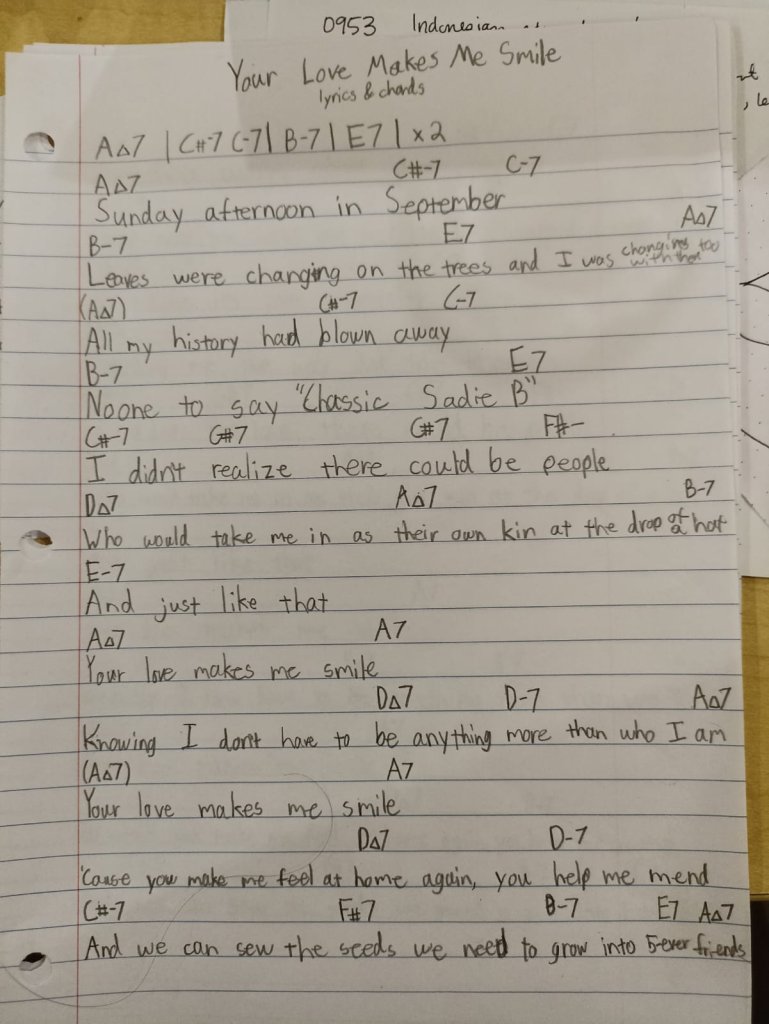 0953 Indonesian
Your Love Makes Me Smile
lyrics & chords
A△7 | C#-7 C-7 | B-7 | E7 | x2
A△7 C#-7 C-7
Sunday afternoon in September
B-7 E7 A△7
Leaves were changing on the trees and I was changing too with them
(A△7) C#-7 C-7
All my history had blown away
B-7 E7
Noone to say "Classic Sadie B"
C#-7 G#7 C#7 F#-
I didn't realize there could be people
D△7 A△7 B-7
Who would take me in as their own kin at the drop of a hat
E-7
And just like that
A△7 A7
Your love makes me smile
D△7 D-7 A△7
Knowing I don't have to be anything more than who I am
(A△7) A7
Your love makes me smile
D△7 D-7
'Cause you make me feel at home again, you help me mend
C#-7 F#7 B-7 E7 A△7
And we can sew the seeds we need to grow into 5-ever friends